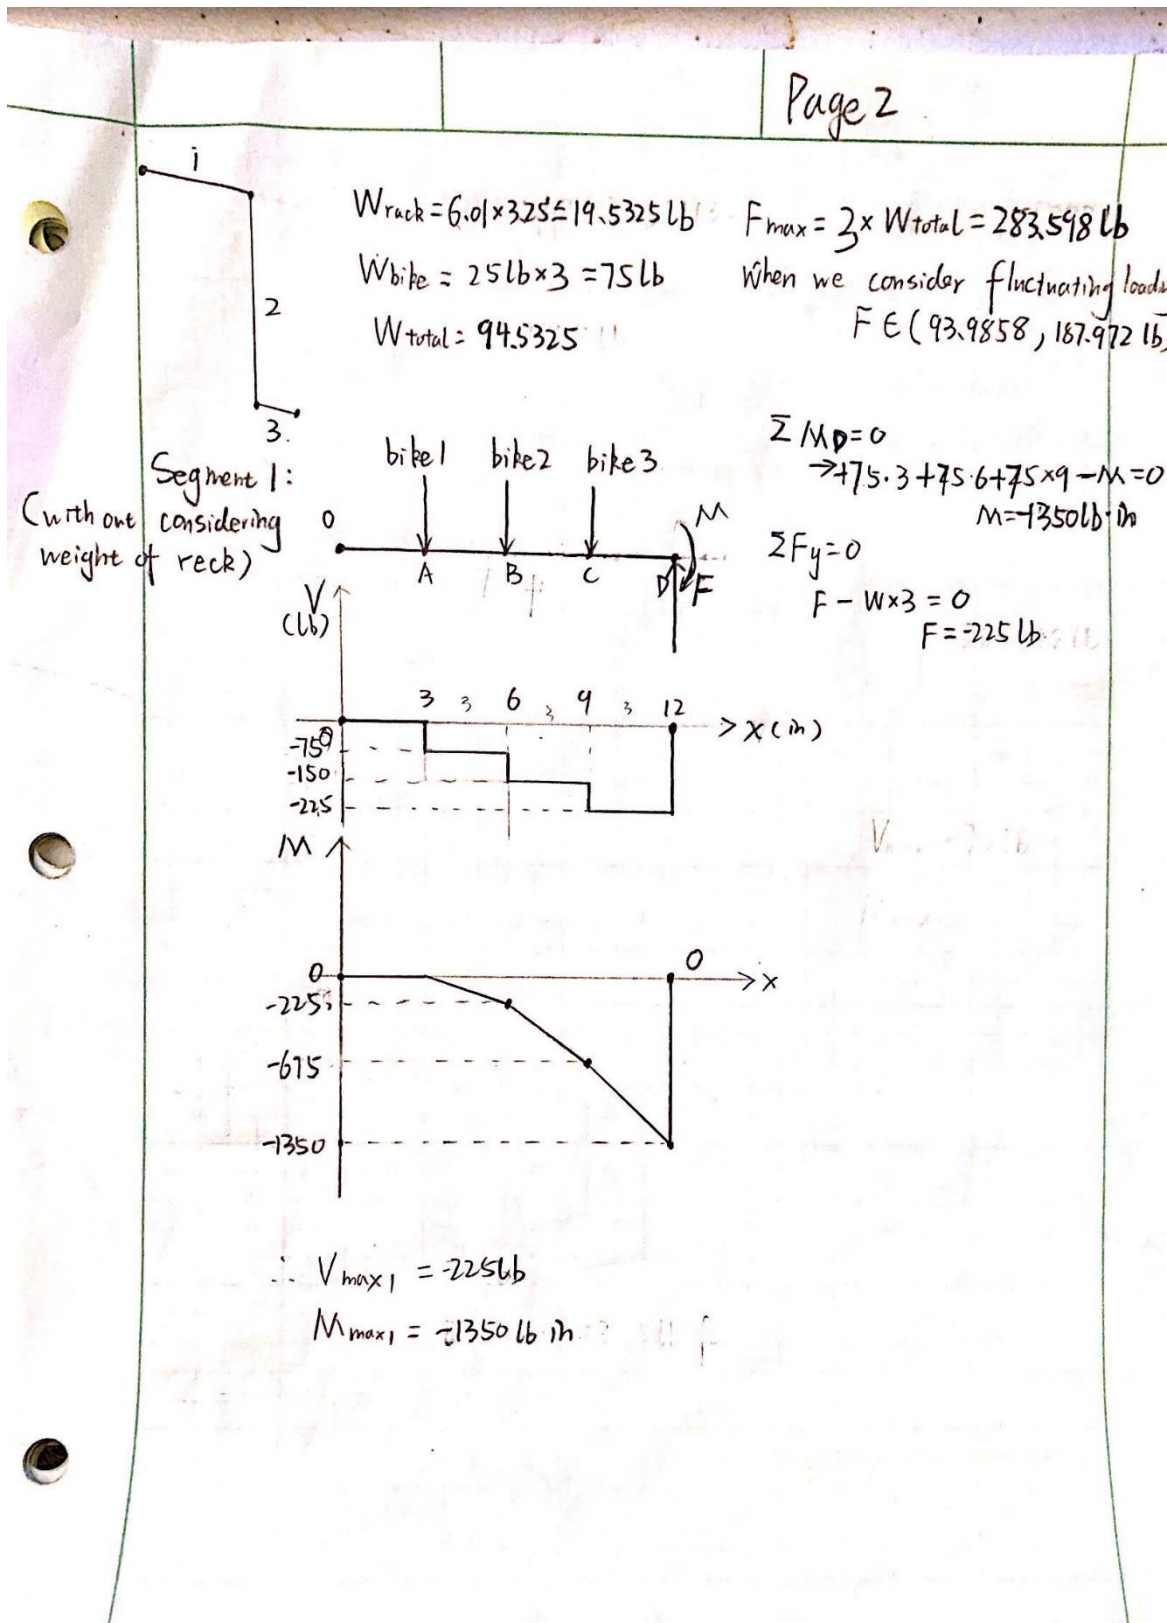 Page 2
1
2
3.
Wrack = 6.01×3.25 = 19.5325 lb
Wbike = 25lb×3 = 75lb
Wtotal = 94.5325
Fmax = 3× Wtotal = 283.598 lb
When we consider fluctuating loadin
F ∈ (93.9858, 187.972 lb)
Segment 1:
(with out considering
weight of reck)
bike1 bike2 bike3
0 A B C D M F
ΣMD=0
→+75·3+75·6+75×9-M=0
M=-1350lb·in
ΣFy=0
F - W×3 = 0
F = -225 lb
V
(Lb)
3 3 6 3 9 3 12
X (in)
0
-75
-150
-225
M
0 0 x
-225
-675
-1350
∴ Vmax1 = -225Lb
Mmax1 = -1350 lb in